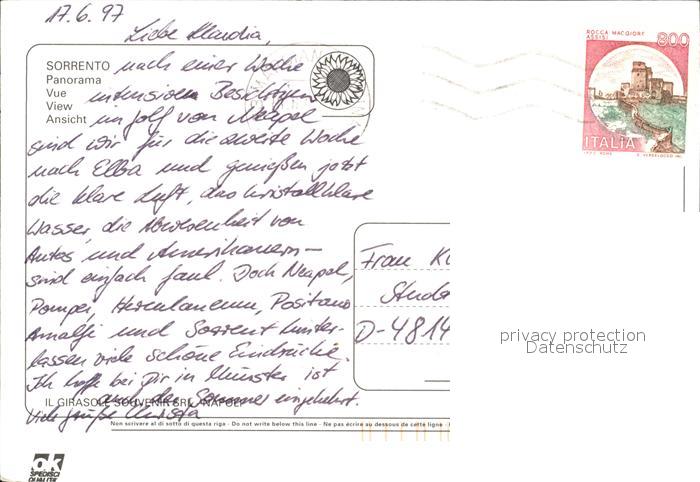 17.6.97
Liebe Klaudia,
SORRENTO
Panorama
Vue
View
Ansicht
nach einer Woche
intensiven Besichtigens
im Golf von Neapel
sind wir für die zweite Woche
nach Elba und genießen jetzt
die klare Luft, das kristallklare
Wasser die Abwesenheit von
Autos und Amerikanern –
sind einfach faul. Doch Neapel,
Pompei, Herculaneum, Positano
Amalfi und Sorrent hinter-
lassen viele schöne Eindrücke.
Ich hoffe bei Dir in Münster ist
auch der Sommer eingekehrt.
Viele Grüße Christa
IL GIRASOLE SOUVENIR SRL - NAPOLI
Non scrivere al di sotto di questa riga - Do not write below this line - Ne pas écrire au dessous de cette ligne
ok
SPEDISCI
QUALITÀ
ROCCA MAGGIORE
ASSISI
800
ITALIA
Frau K
Stude
D-4814
privacy protection
Datenschutz